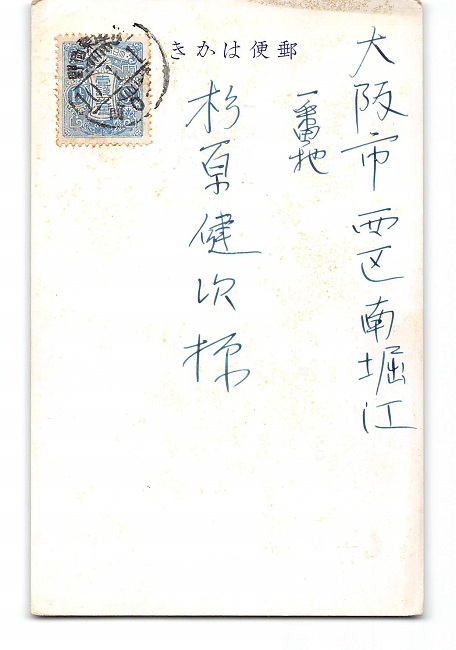 郵便はかき
大阪市西区南堀江
一番地
杉原健次様